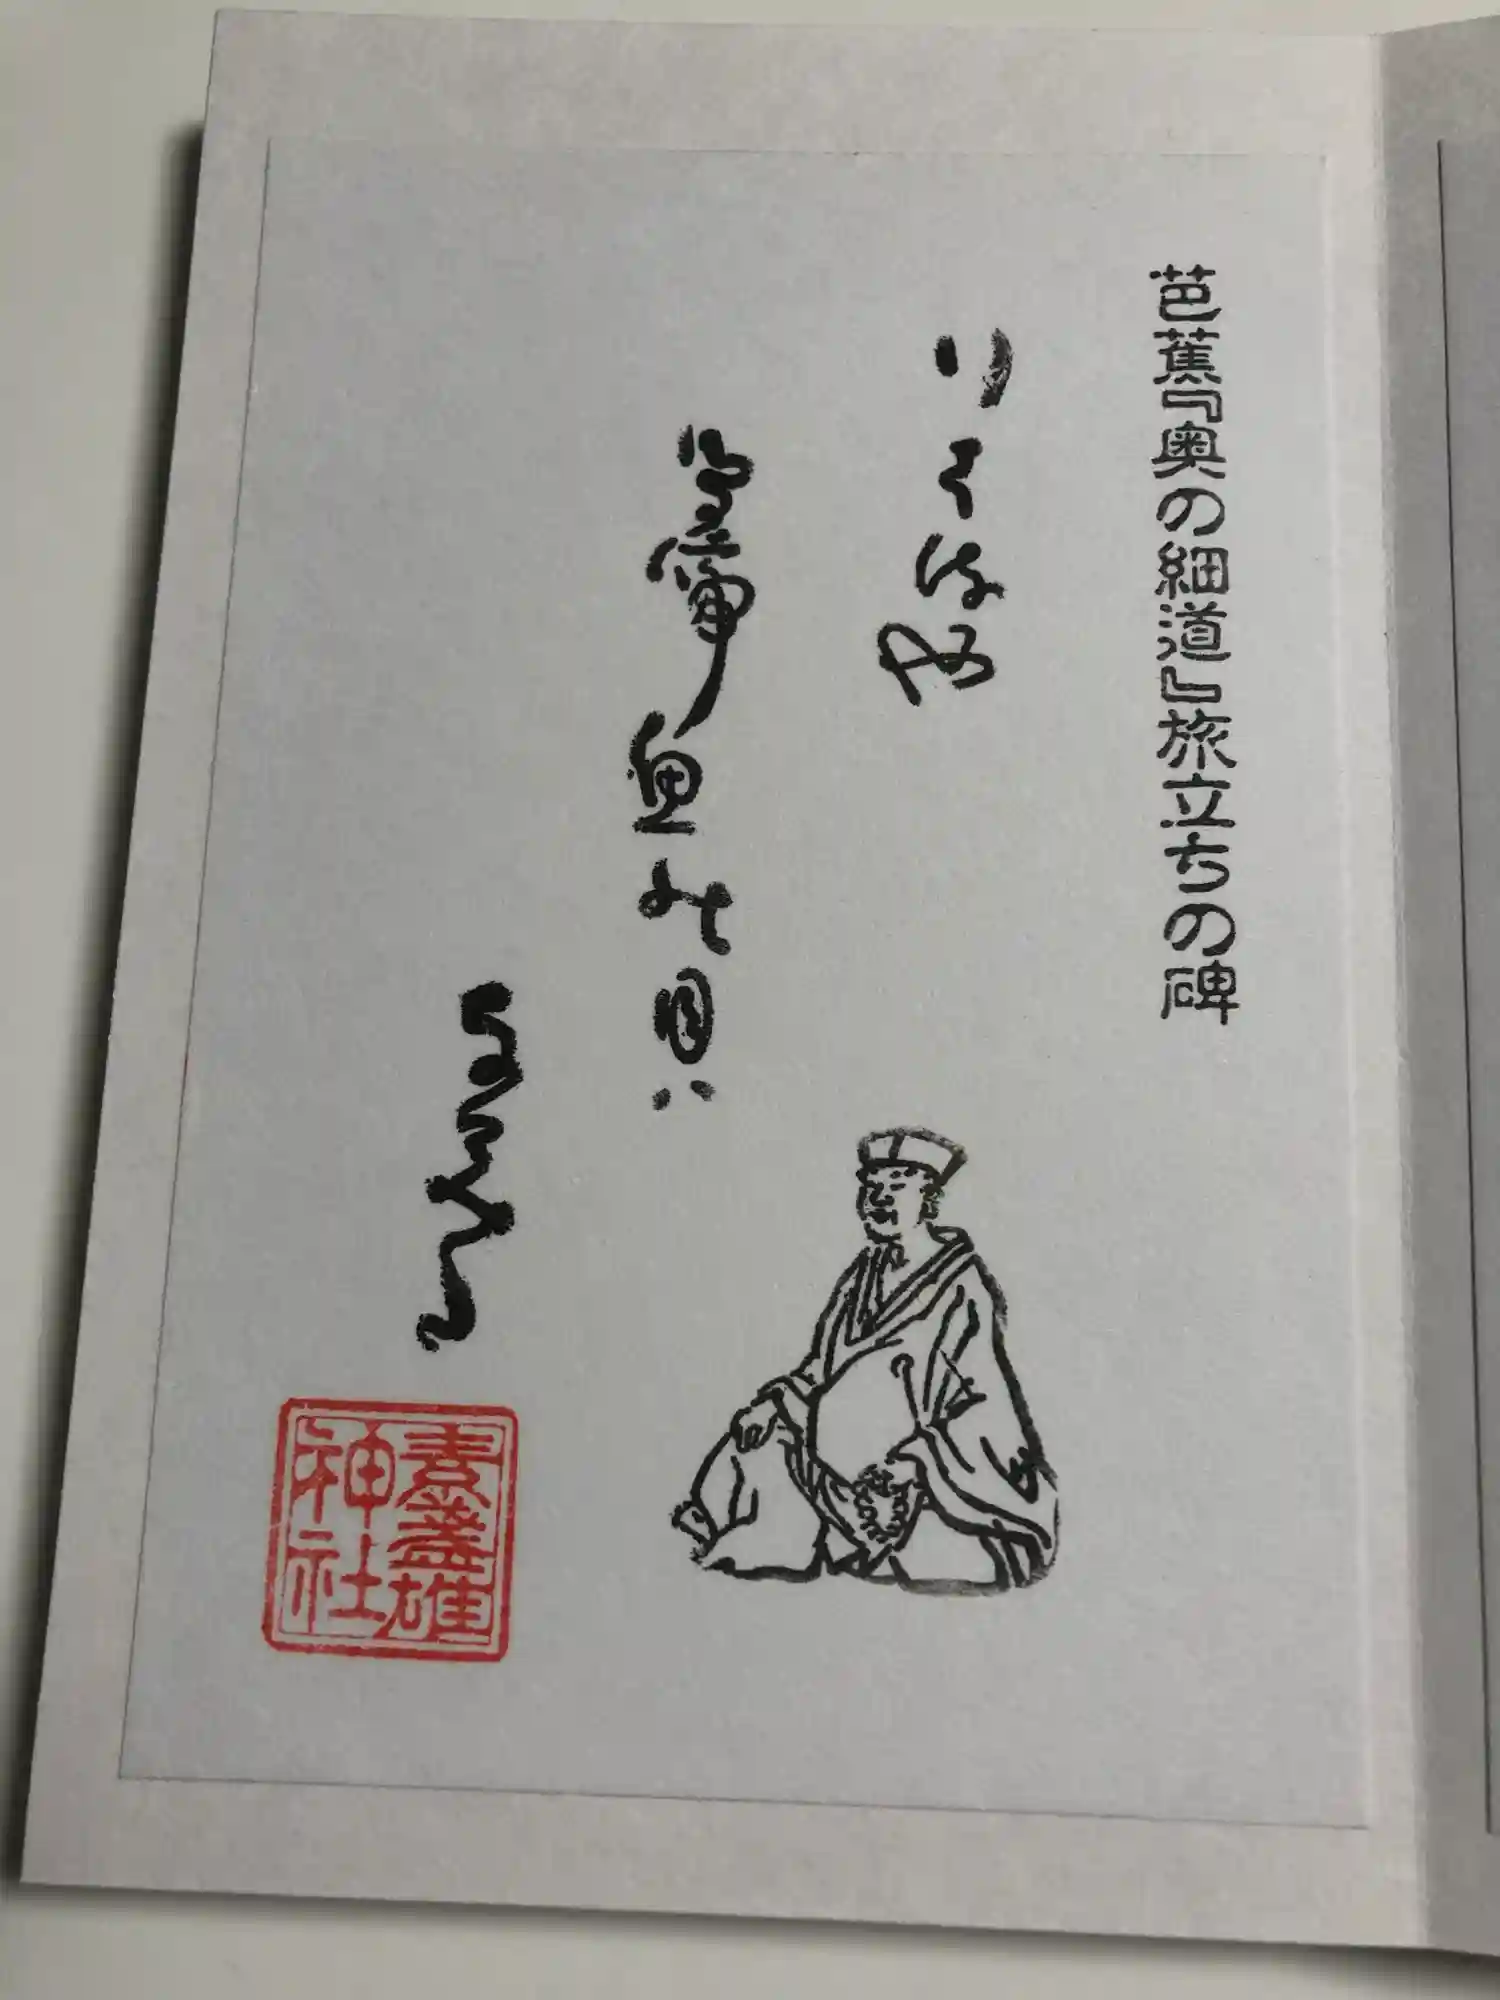 芭蕉『奥の細道』旅立ちの碑
行はるや
鳥啼魚の目ハ
なみた
素盞雄
神社